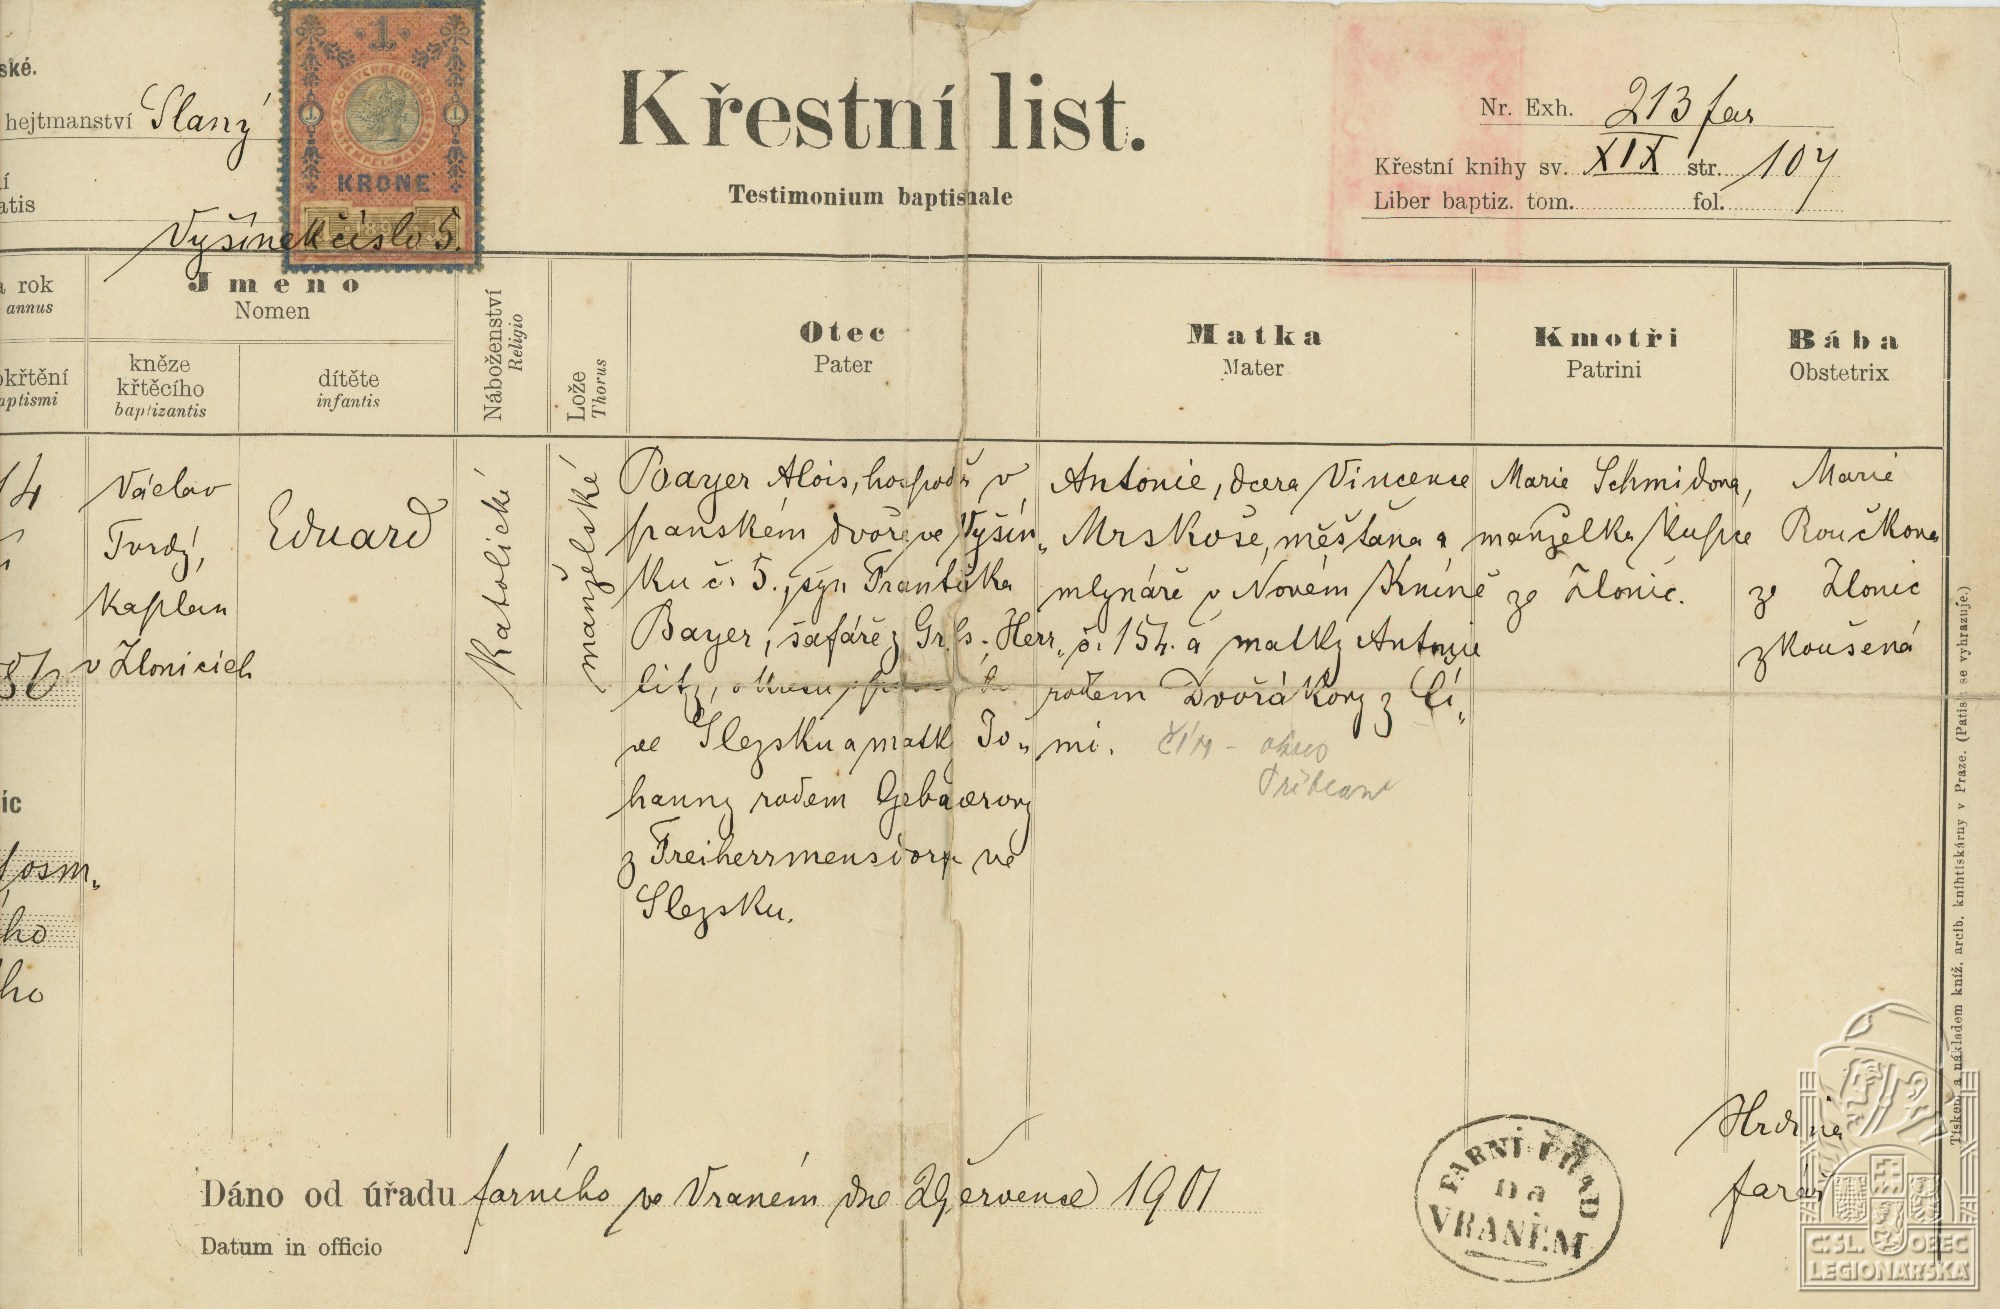 ské.
hejtmanství Slaný
1
KRONE
Křestní list.
Testimonium baptismale
Nr. Exh. 213 far
Křestní knihy sv. XIX str. 107
Liber baptiz. tom. fol.
atis
Vyšínek číslo 5.
a rok
annus
okřtění
aptismi
Jméno
Nomen
kněze
křtěcího
baptizantis
dítěte
infantis
Náboženství
Religio
Lože
Thorus
Otec
Pater
Matka
Mater
Kmotři
Patrini
Bába
Obstetrix
14
86
íc
osm„
ho
ho
Václav
Tvrdý,
kaplan
v Zlonicích
Eduard
Katolické
manželské
Bayer Alois, hospodř v
panském dvoře ve Vyšín„
ku č. 5., syn Františka
Bayer, šafáře z Grfs. Herr„
litz, okresu
ve Slezsku a matky Jo„
hanny rodem Gebauerovy
z Freiherrmensdorf ve
Slezsku.
Antonie, dcera Vincence
Mrskoše, měšťana a
mlynáře v Novém Kníně
č. 154. a matky Antonie
rodem Dvořákovy z Čí„
mi.
Čím - okres
Příbram
Marie Schmidova,
manželka kupce
ze Zlonic.
Marie
Roučkova
ze Zlonic
zkoušená
Tiskem a nákladem kníž. arcib. knihtiskárny v Praze. (Patisk se vyhrazuje.)
Dáno od úřadu farního ve Vraném dne 29 července 1901
Datum in officio
FARNÍ ÚŘAD
na
VRANÉM
Hrdina
farář
Č.SL. OBEC
LEGIONÁŘSKÁ